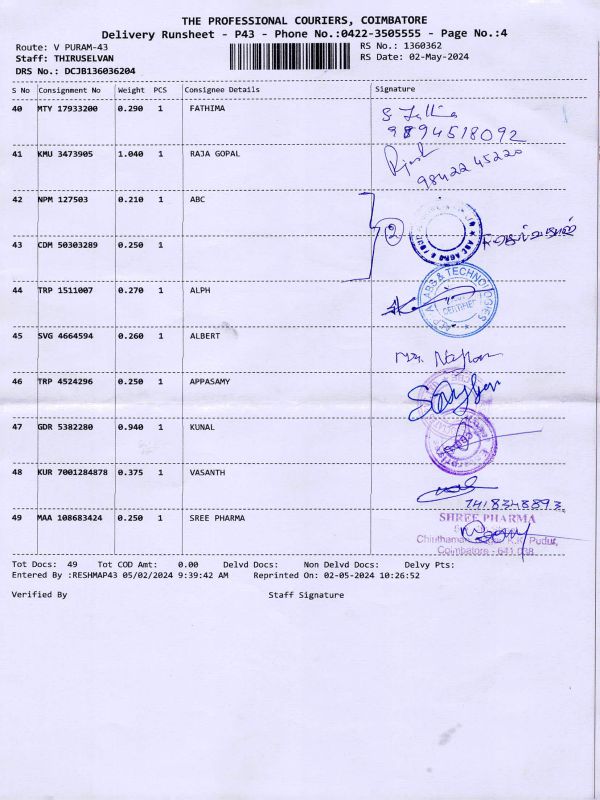 THE PROFESSIONAL COURIERS, COIMBATORE
Delivery Runsheet - P43 - Phone No.:0422-3505555 - Page No.:4
Route: V PURAM-43 RS No.: 1360362
Staff: THIRUSELVAN RS Date: 02-May-2024
DRS No.: DCJB136036204
S No Consignment No Weight PCS Consignee Details Signature
40 MTY 17933200 0.290 1 FATHIMA
9894518092
41 KMU 3473905 1.040 1 RAJA GOPAL
98422 45220
42 NPM 127503 0.210 1 ABC
2
43 CDM 50303289 0.250 1
44 TRP 1511007 0.270 1 ALPH
LABS & TECHNOLOGIES
45 SVG 4664594 0.260 1 ALBERT
46 TRP 4524296 0.250 1 APPASAMY
47 GDR 5382280 0.940 1 KUNAL
48 KUR 7001284878 0.375 1 VASANTH
7418348893
49 MAA 108683424 0.250 1 SREE PHARMA
SHREE PHARMA
Pudur,
Coimbatore - 641 038
Tot Docs: 49 Tot COD Amt: 0.00 Delvd Docs: Non Delvd Docs: Delvy Pts:
Entered By :RESHMAP43 05/02/2024 9:39:42 AM Reprinted On: 02-05-2024 10:26:52
Verified By Staff Signature